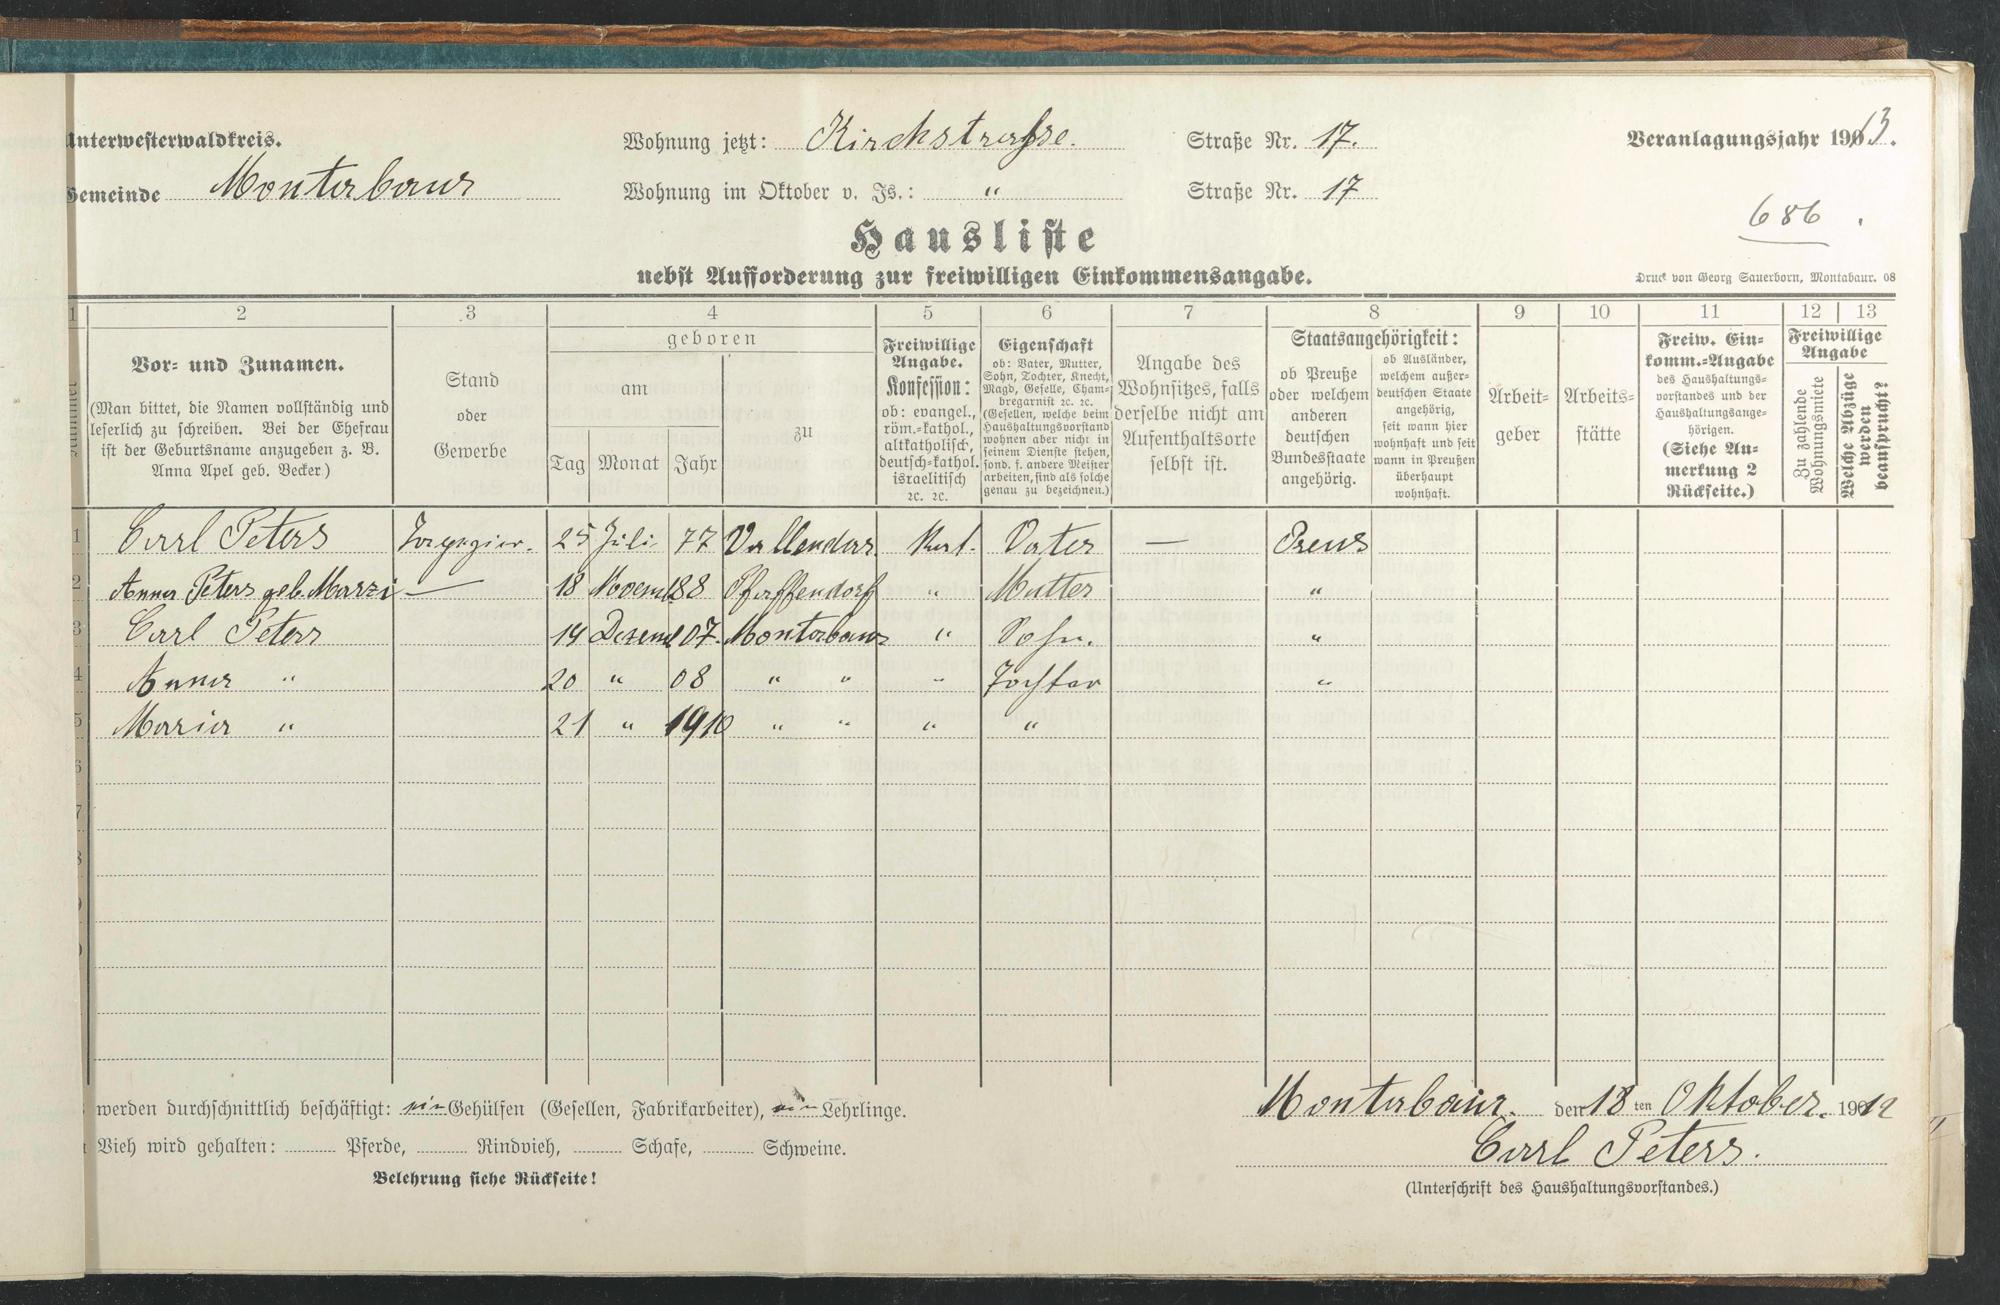 Unterwesterwaldkreis.
Wohnung jetzt: Kirchstrasse. Straße Nr. 17.
Veranlagungsjahr 19013.
Gemeinde Montabaur
Wohnung im Oktober v. Js.: " Straße Nr. 17
686.
Hausliste
nebst Aufforderung zur freiwilligen Einkommensangabe.
Druck von Georg Sauerborn, Montabaur. 08
1 2 3 4 5 6 7 8 9 10 11 12 13
Nummer
Vor- und Zunamen.
(Man bittet, die Namen vollständig und
leserlich zu schreiben. Bei der Ehefrau
ist der Geburtsname anzugeben z. B.
Anna Apel geb. Becker)
Stand
oder
Gewerbe
geboren
am
Tag Monat Jahr
zu
Freiwillige
Angabe.
Konfession:
ob: evangel.,
röm.-kathol.,
altkatholisch,
deutsch-kathol.
israelitisch
ꝛc. ꝛc.
Eigenschaft
ob: Vater, Mutter,
Sohn, Tochter, Knecht,
Magd, Geselle, Cham-
bregarnist ꝛc. ꝛc.
(Gesellen, welche beim
Haushaltungsvorstand
wohnen aber nicht in
seinem Dienste stehen,
sond. f. andere Meister
arbeiten, sind als solche
genau zu bezeichnen.)
Angabe des
Wohnsitzes, falls
derselbe nicht am
Aufenthaltsorte
selbst ist.
Staatsangehörigkeit:
ob Preuße
oder welchem
anderen
deutschen
Bundesstaate
angehörig.
ob Ausländer,
welchem außer-
deutschen Staate
angehörig,
seit wann hier
wohnhaft und seit
wann in Preußen
überhaupt
wohnhaft.
Arbeit-
geber
Arbeits-
stätte
Freiw. Ein-
komm.-Angabe
des Haushaltungs-
vorstandes und der
Haushaltungsange-
hörigen.
(Siehe An-
merkung 2
Rückseite.)
Freiwillige
Angabe
Zu zahlende
Wohnungsmiete
Welche Abzüge
werden
beansprucht?
1 Carl Peters 25 Juli 77 Vallendar Kat. Vater — Preus
2 Anna Peters geb. Marzi — 18 Novemb 88 Pfaffendorf " Mutter "
3 Carl Peters 14 Dezemb 07. Montabaur " Sohn. "
4 Anna " 20 " 08 " " " Tochter "
5 Maria " 21 " 1910 " " " "
6
7
8
9
0
werden durchschnittlich beschäftigt: Gehülfen (Gesellen, Fabrikarbeiter), Lehrlinge.
Montabaur. den 18 ten Oktober. 19012
Vieh wird gehalten: Pferde, Rindvieh, Schafe, Schweine.
Carl Peters.
Belehrung siehe Rückseite!
(Unterschrift des Haushaltungsvorstandes.)